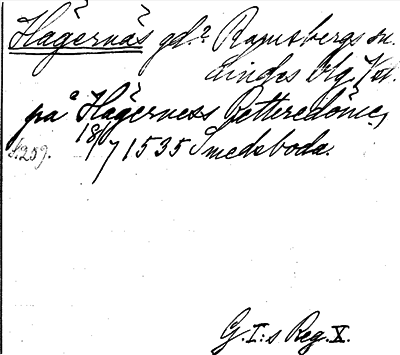 Hägernäs gd.? Ramsbergs sn.
Lindes blg. Vstl.
på Hägerness Retteredöme,
18/7 1535 Smedsboda.
s. 259.
G. I:s Reg. X.